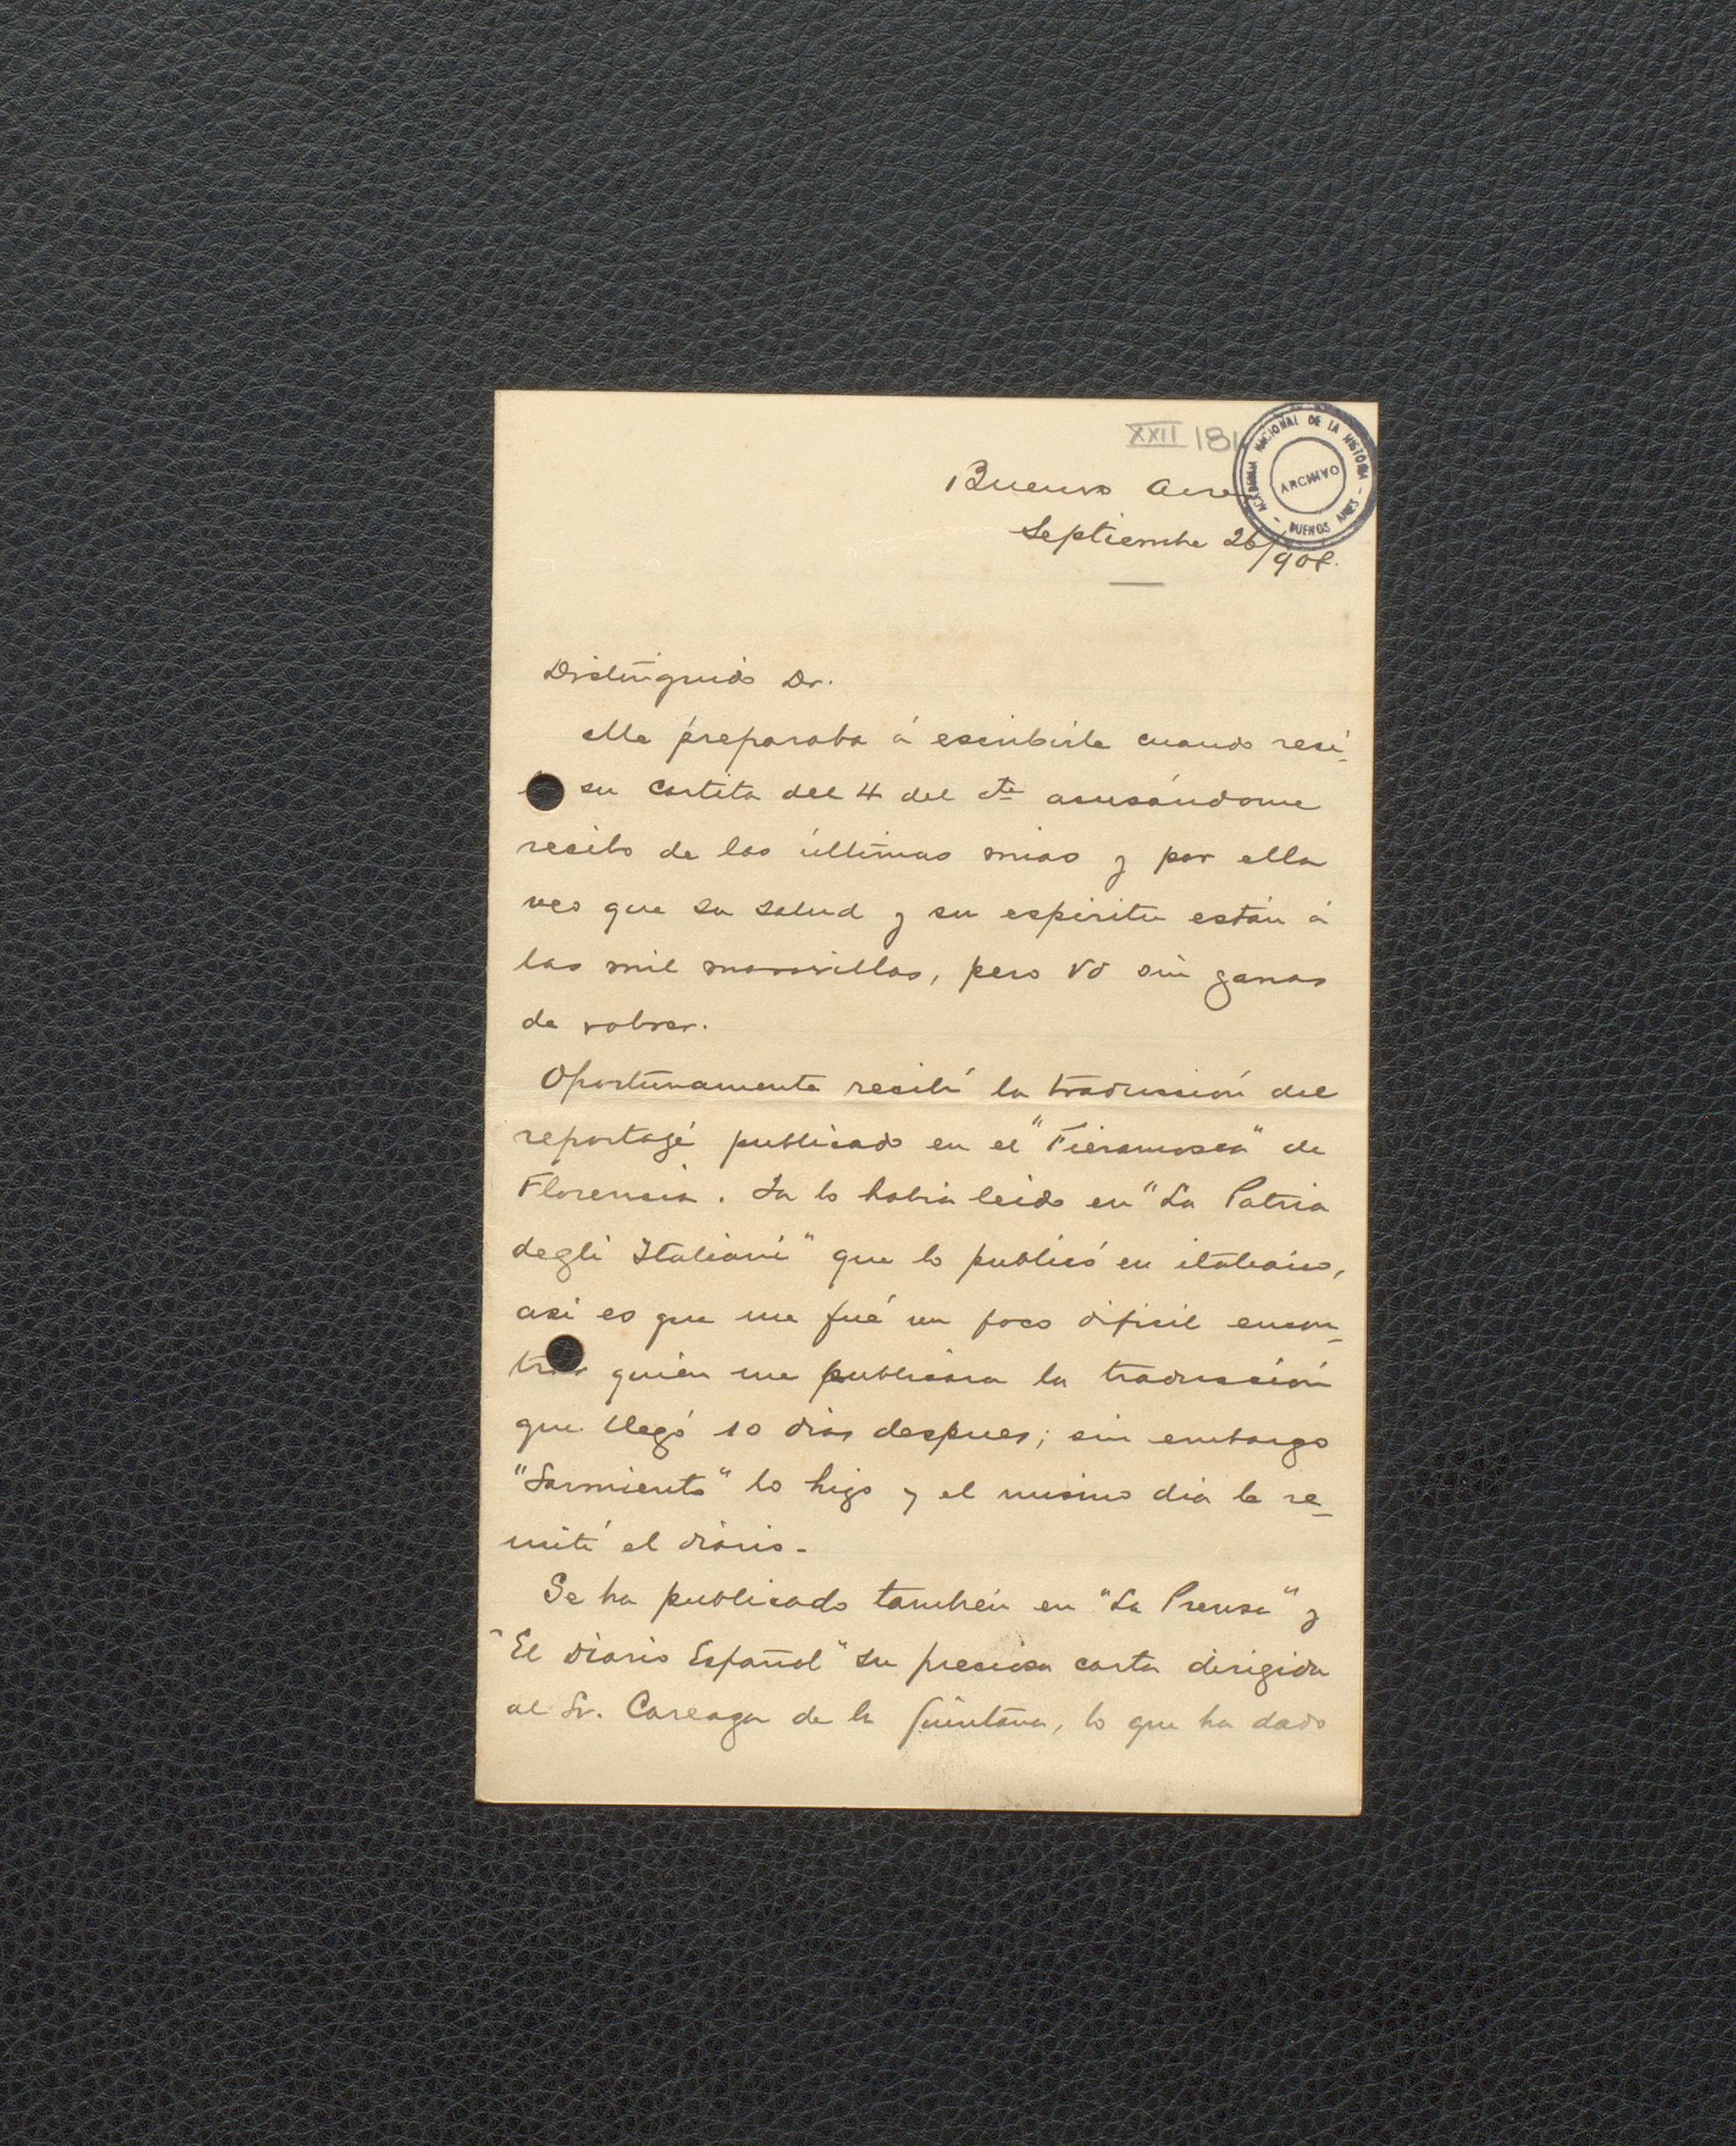 XXII 181
ACADEMIA NACIONAL DE LA HISTORIA - BUENOS AIRES -
ARCHIVO
Buenos Aires
Septiembre 26/908.
Distinguido Dr.
Me preparaba á escribirle cuando reci-
su cartita del 4 del cte acusándome
recibo de las últimas mias y por ella
veo que su salud y su espíritu están á
las mil maravillas, pero Vd sin ganas
de volver.
Oportunamente recibí la traducción del
reportage publicado en el "Fieramosca" de
Florencia. Ya lo habia leido en "La Patria
degli Italiani" que lo publicó en italiano,
asi es que me fué un poco dificil encon-
trar quien me publicara la traducción
que llegó 10 dias despues; sin embargo
"Sarmiento" lo hizo y el mismo dia le re-
mití el diario.
Se ha publicado también en "La Prensa" y
"El Diario Español" su preciosa carta dirigida
al Sr. Careaga de la Quintana, lo que ha dado